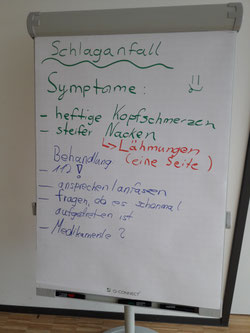 Schlaganfall
Symptome:
- heftige Kopfschmerzen
- steifer Nacken
Lähmungen
(eine Seite)
Behandlung
- 112!
- ansprechen/anfassen
fragen, ob es schonmal
aufgetreten ist
- Medikamente?